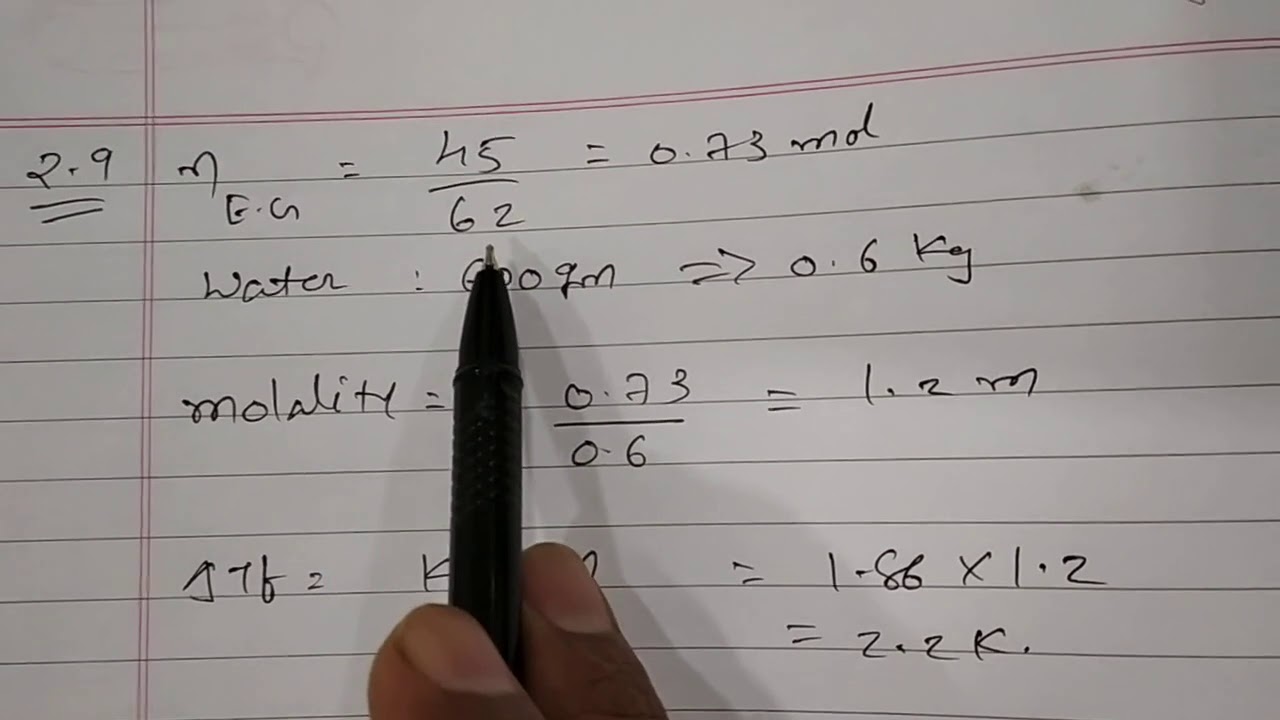 2.9 n E.G = 45/62 = 0.73 mol
Water : 600 gm => 0.6 Kg
molality = 0.73/0.6 = 1.2 m
ΔTf = K = 1.86 X 1.2
= 2.2 K.